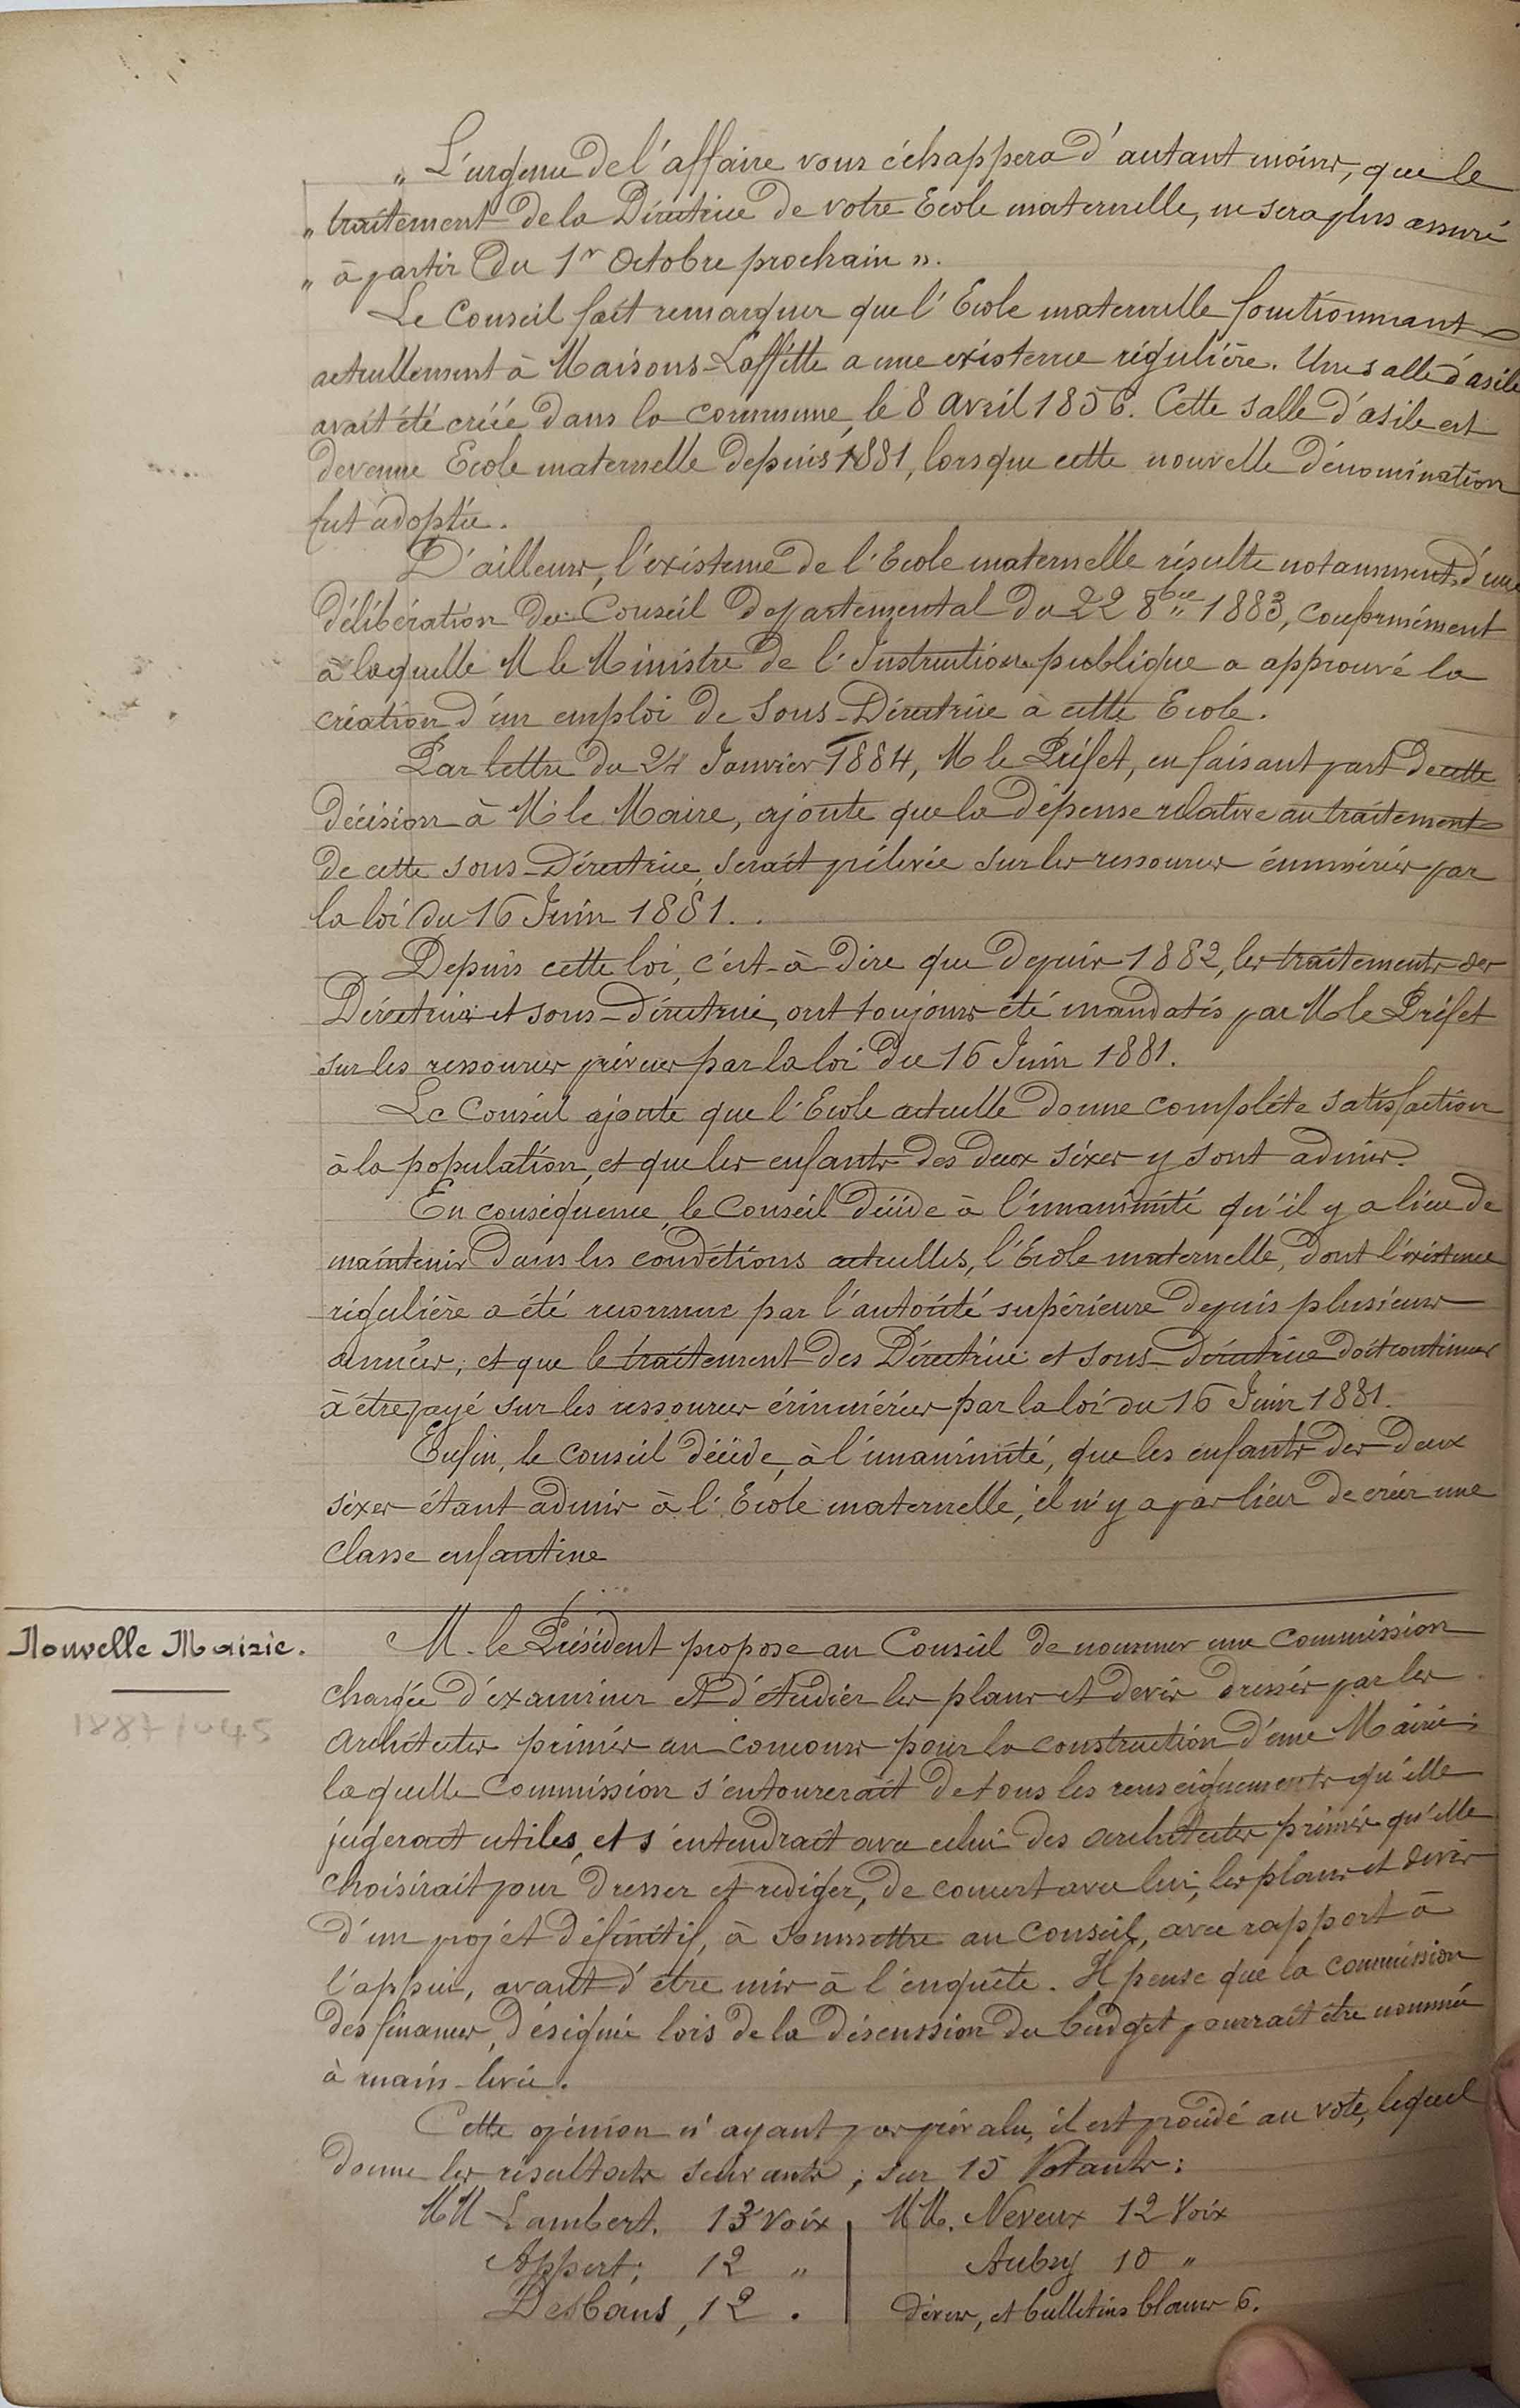 " L'urgence de l'affaire vous échappera d'autant moins, que le
" traitement de la Directrice de votre Ecole maternelle, ne sera plus assuré
" à partir du 1er Octobre prochain ".
Le Conseil fait remarquer que l'Ecole maternelle fonctionnant
actuellement à Maisons-Laffitte a une existence régulière. Une salle d'asile
avait été créée dans la commune, le 8 avril 1856. Cette salle d'asile est
devenue Ecole maternelle depuis 1881, lorsque cette nouvelle dénomination
fut adoptée.
D'ailleurs, l'existence de l'Ecole maternelle résulte notamment d'une
délibération du Conseil départemental du 22 8bre 1883, conformément
à laquelle M le Ministre de l'Instruction publique a approuvé la
création d'un emploi de Sous-Directrice à cette Ecole.
Par lettre du 24 Janvier 1884, M le Préfet, en faisant part de cette
décision à M. le Maire, ajoute que la dépense relative au traitement
de cette sous-Directrice, serait prélevée sur les ressources énumérées par
la loi du 16 Juin 1881..
Depuis cette loi, c'est-à-dire que depuis 1882, les traitements des
Directrice et sous-directrice, ont toujours été mandatés par M le Préfet
sur les ressources prévues par la loi du 16 Juin 1881.
Le Conseil ajoute que l'Ecole actuelle donne complète satisfaction
à la population, et que les enfants des deux sexes y sont admis.
En conséquence, le Conseil décide à l'unanimité qu'il y a lieu de
maintenir dans les conditions actuelles, l'Ecole maternelle, dont l'existence
régulière a été reconnue par l'autorité supérieure depuis plusieurs
années; et que le traitement des Directrice et sous-directrice doit continuer
à être payé sur les ressources énumérées par la loi du 16 Juin 1881.
Enfin, le Conseil décide, à l'unanimité, que les enfants des deux
sexes étant admis à l'Ecole maternelle, il n'y a pas lieu de créer une
classe enfantine
Nouvelle Mairie.
1887/045
M. le Président propose au Conseil de nommer une commission
chargée d'examiner et d'étudier les plans et devis dressés par les
architectes primés au concours pour la construction d'une Mairie;
laquelle Commission s'entourerait de tous les renseignements qu'elle
jugerait utiles, et s'entendrait avec celui des architectes primés qu'elle
choisirait pour dresser et rediger, de concert avec lui, les plans et devis
d'un projet définitif, à soumettre au Conseil, avec rapport à
l'appui, avant d'être mis à l'enquête. Il pense que la commission
des finances, désignée lors de la discussion du budget pourrait être nommée
à main-levée.
Cette opinion n'ayant pas prévalu, il est procédé au vote, lequel
donne les résultats suivants; sur 15 Votants:
MM Lambert. 13 Voix MM. Neveux 12 Voix
Appert; 12 " Aubry 10 "
Desbans, 12 . divers, et bulletins blancs 6.